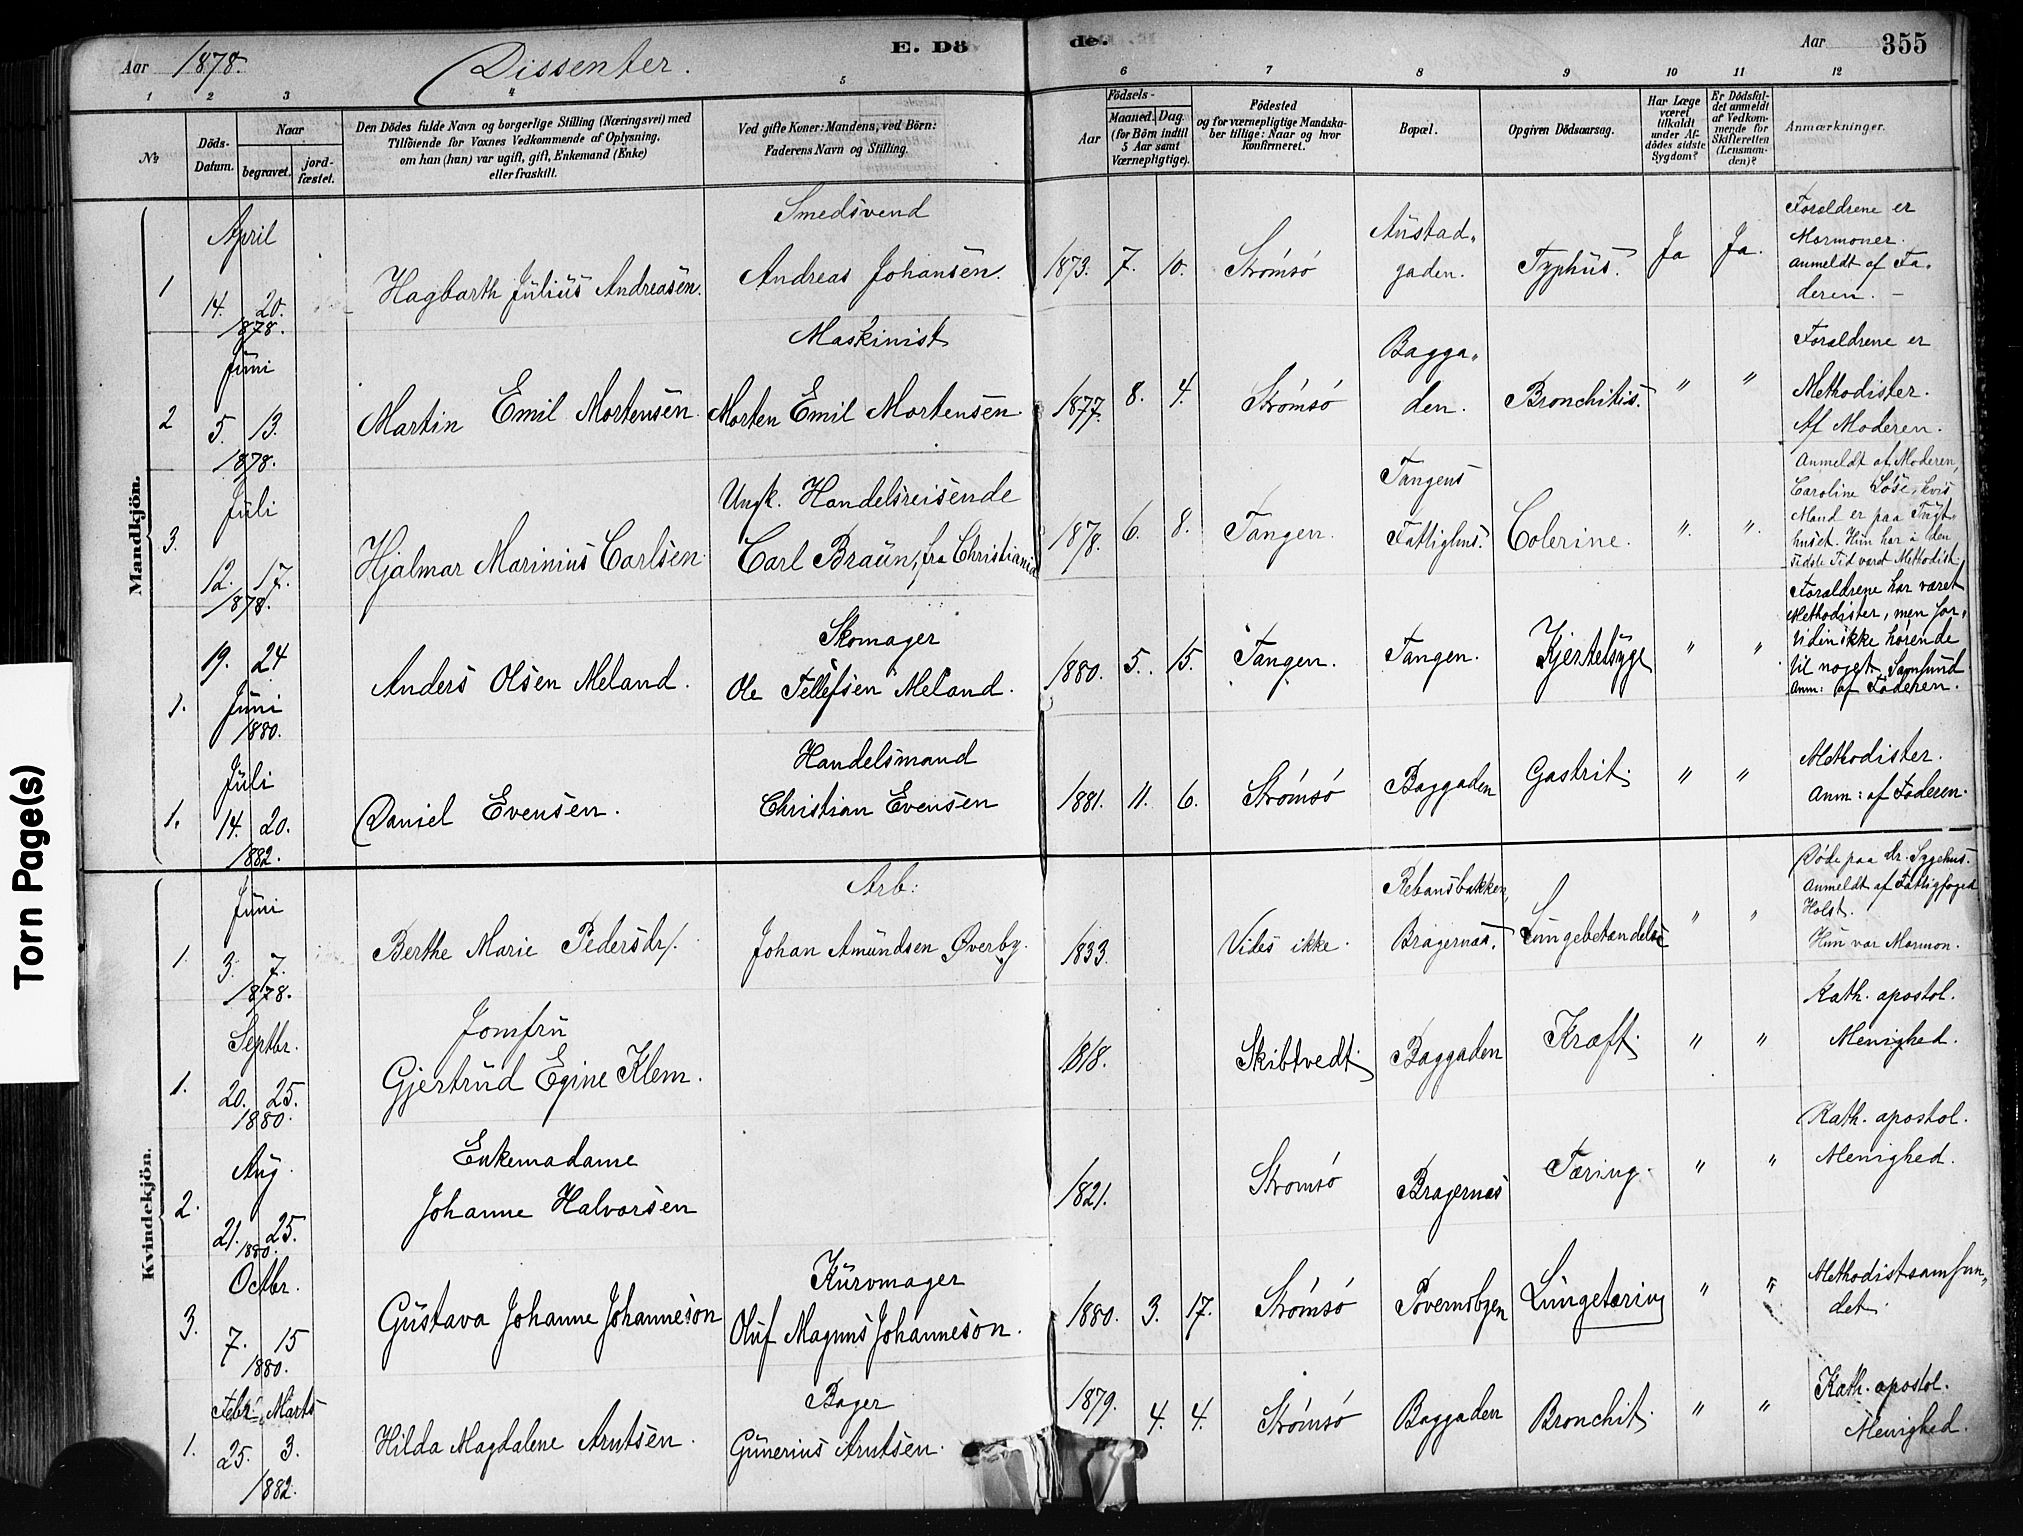 Torn Page(s)
Aar 1878.
Dissenter.
E. Dö
de.
Aar
355
1 2 3 4 5 6 7 8 9 10 11 12
No
Döds-
Datum.
Naar
begravet.
jord-
fæstet.
Den Dödes fulde Navn og borgerlige Stilling (Næringsvei) med
Tilföiende for Voxnes Vedkommende af Oplysning,
om han (hun) var ugift, gift, Enkemand (Enke)
eller fraskilt.
Ved gifte Koner: Mandens, ved Börn:
Faderens Navn og Stilling.
Födsels-
Aar
Maaned. Dag.
(for Börn indtil
5 Aar samt
Værnepligtige).
Födested
og for værnepligtige Mandska-
ber tillige: Naar og hvor
konfirmeret.
Bopæl.
Opgiven Dödsaarsag.
Har Læge
været
tilkaldt
under Af-
dödes sidste
Sygdom?
Er Dödsfal-
det anmeldt
af Vedkom-
mende for
Skifteretten
(Lensman-
den)?
Anmærkninger.
Mandkjön.
April
1
14. 20.
1878.
Hagbarth Julius Andreasen.
Smedsvend
Andreas Johansen.
1873. 7. 10.
Strømsø
Austad-
gaden.
Typhus.
Ja
Ja.
Forældrene er
Mormoner.
Anmeldt af Fa-
deren. –
Juni
2
5. 13.
1878.
Martin Emil Mortensen
Maskinist
Morten Emil Mortensen.
1877. 8. 4.
Strømsø
Bagga-
den.
Bronchitis.
" "
Forældrene er
Methodister.
Af Moderen.
Juli
3.
12. 17.
1878.
Hjalmar Marinius Carlsen.
Ungk. Handelsreisende
Carl Braun, fra Christiania
1878. 6. 8.
Tangen.
Tangens
Fattighus.
Colerine.
" "
Anmeldt af Moderen,
Caroline Løse, hvis
Mand er paa Tugt-
huset. Hun har i den
sidste Tid været Methodist.
1.
19. 24
Juni
1880.
Anders Olsen Meland.
Skomager
Ole Tellefsen Meland.
1880. 5. 15.
Tangen.
Tangen.
Kjertelsyge
" "
Forældrene har været
Methodister, men for-
tiden ikke hørende
til noget Samfund
Anm: af Faderen.
Juli
1.
14. 20.
1882.
Daniel Evensen.
Handelsmand
Christian Evensen
1881. 11. 6.
Strømsø
Baggaden
Gastrit.
" "
Methodister.
Anm: af Faderen.
Kvindekjön.
Juni
1.
3. 7.
1878.
Berthe Marie Pedersdr.
Arb:
Johan Amundsen Øverby.
1833.
Vides ikke.
Bragernæs.
Lungebetændelse
" "
Døde paa Br. Sygehus.
Anmeldt af Fattigfoged
Holst.
Hun var Mormon.
Septbr.
1.
20. 25.
1880.
Jomfru
Gjertrud Egine Klem.
1818.
Skibtvedt
Baggaden
Kræft.
" "
Kath. apostol.
Menighed.
Aug.
2.
21. 25.
1880.
Enkemadame
Johanne Halvorsen
1821.
Strømsø
Bragernæs
Tæring.
" "
Kath. apostol.
Menighed.
Octbr.
3.
7. 15
1880.
Gustava Johanne Johanneson
Kurvmager
Oluf Magnus Johanneson.
1880. 3. 17.
Strømsø
Lungetæring
" "
Methodistsamfun-
det.
Febr. Marts
1.
25. 3.
1882.
Hilda Magdalene Arntsen.
Bager
Gunerius Arntsen.
1879. 4. 4.
Strømsø
Baggaden
Bronchit.
" "
Kath. apostol.
Menighed.